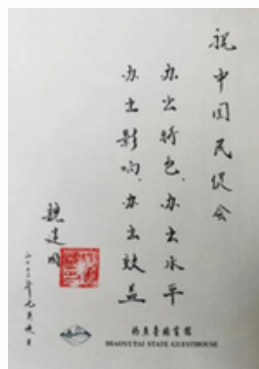 祝中国民促会
办出特色、办出水平
办出影响、办出效益
魏建国
钓鱼台国宾馆
DIAOYUTAI STATE GUESTHOUSE